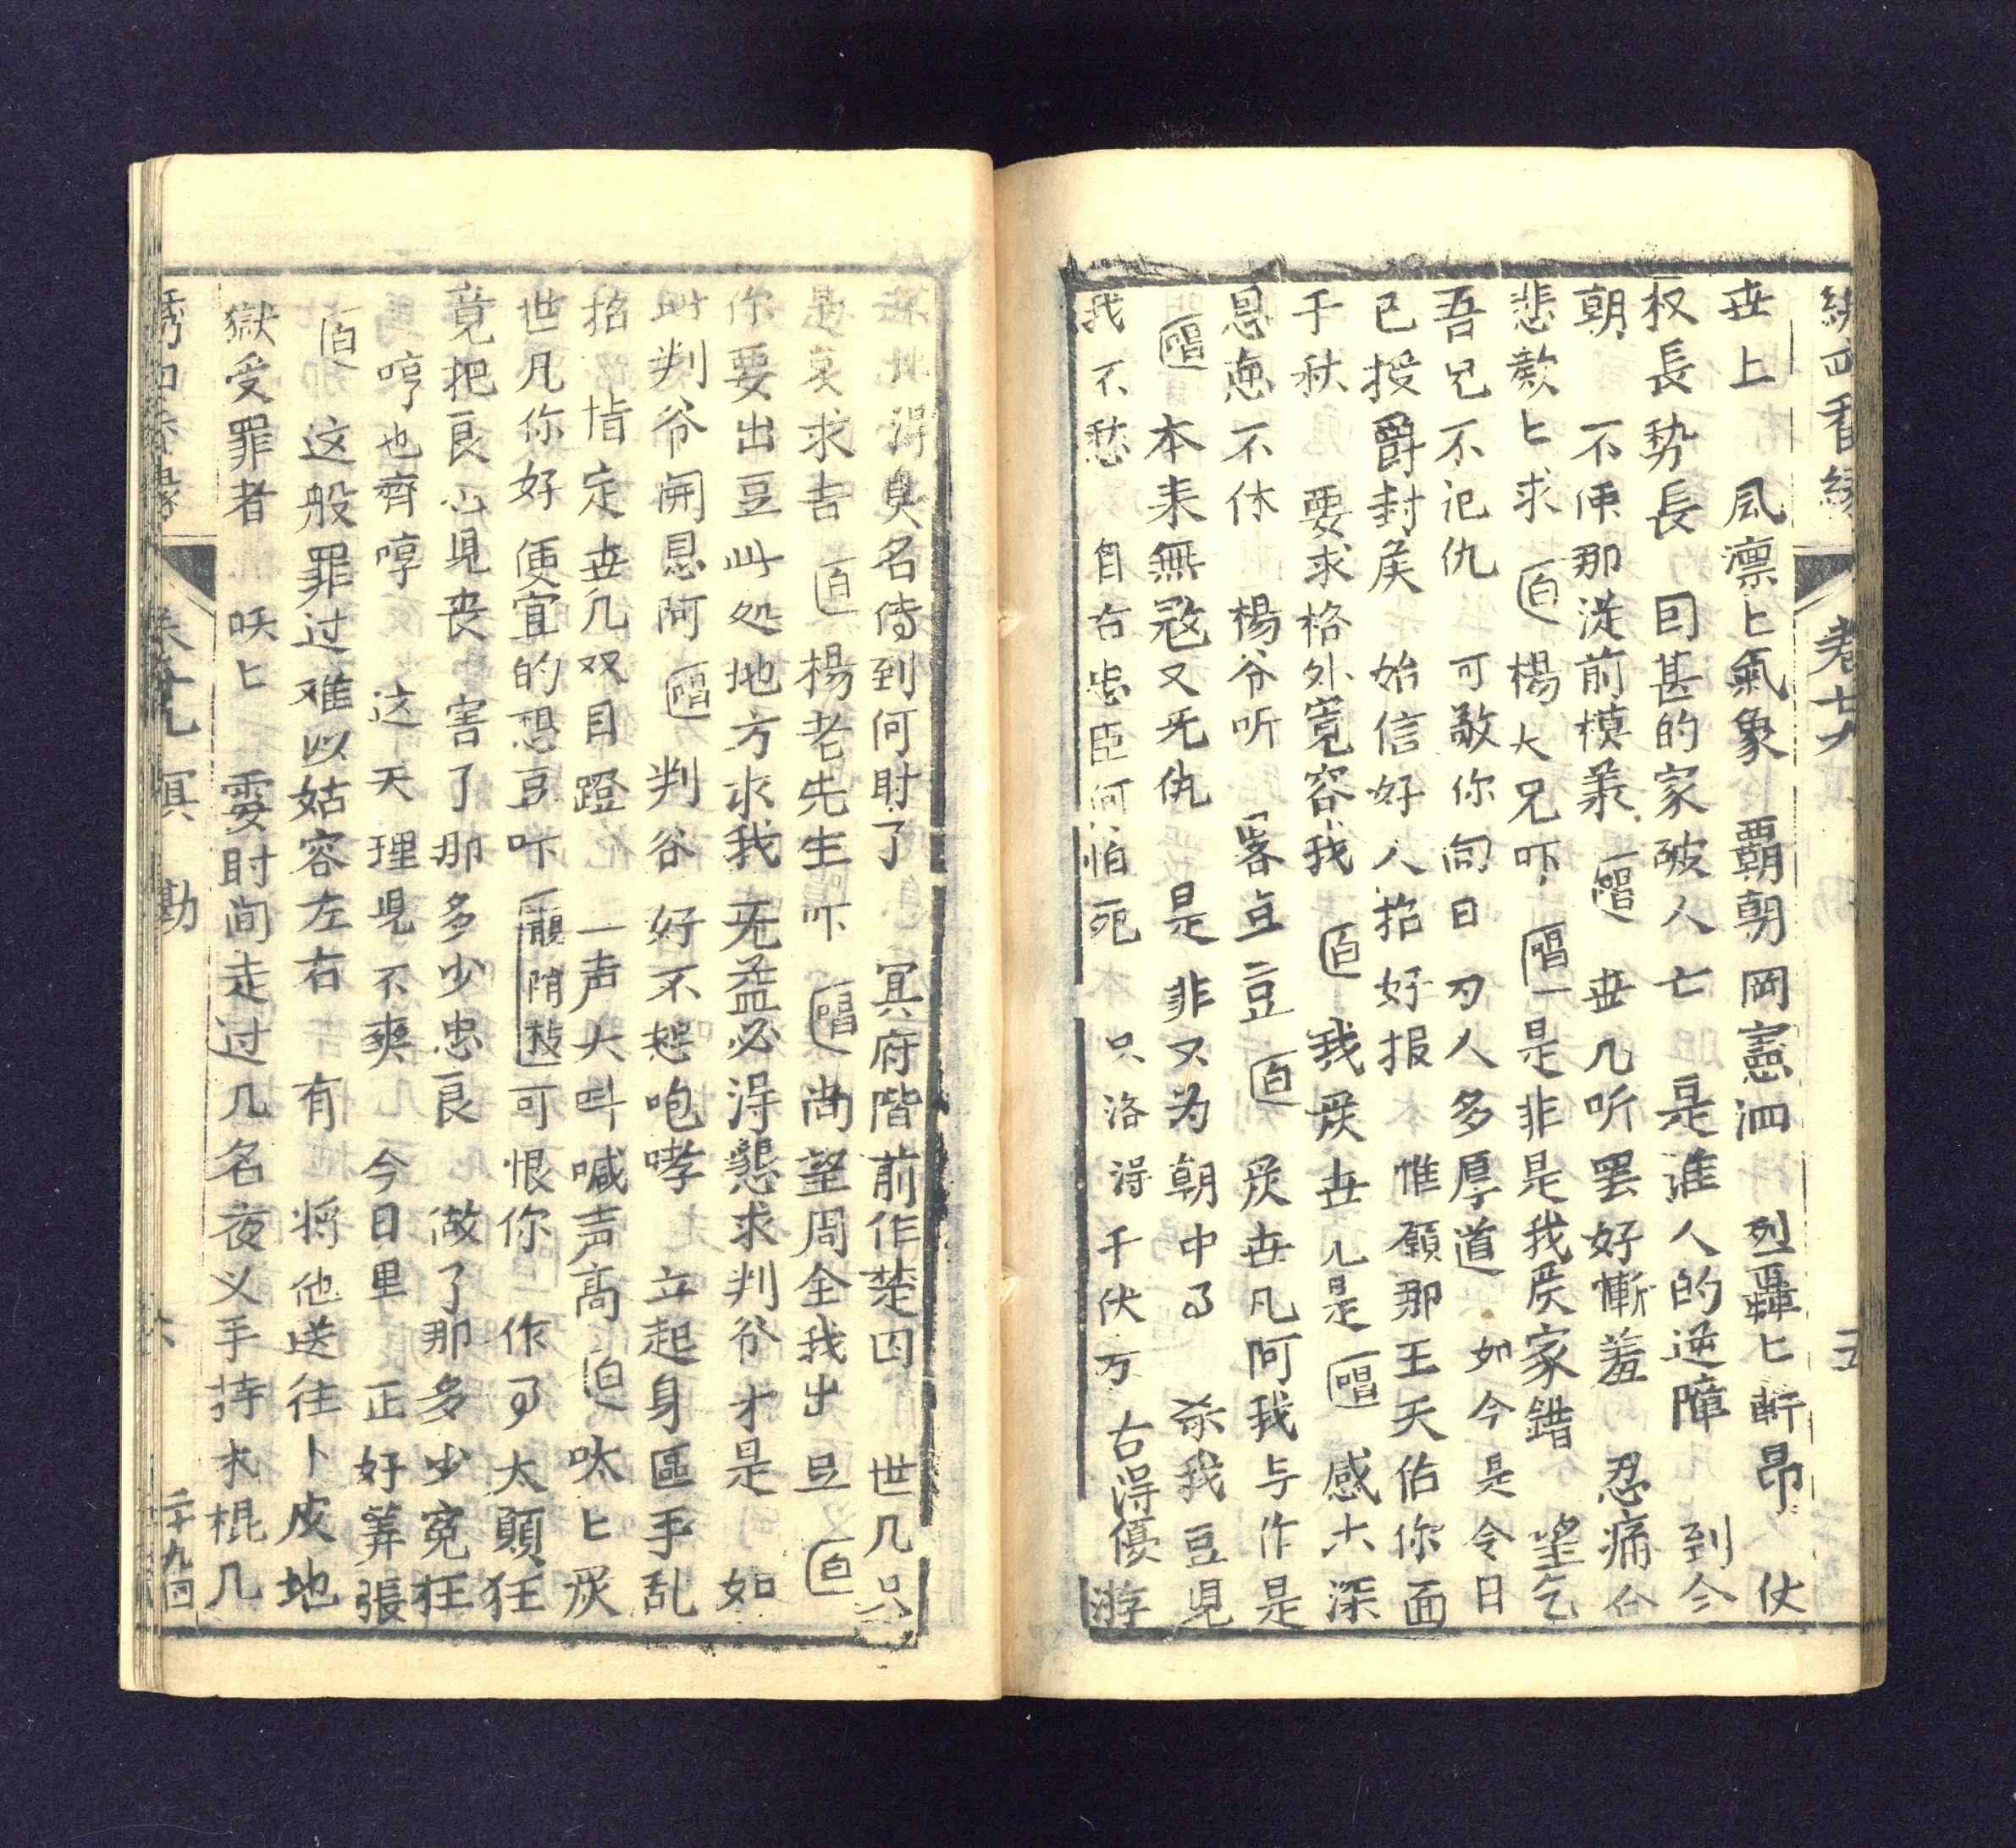 卷
五
世上　風凛匕氣象　覇朝岡憲泗　烈轟匕軒昂　仗
权長势長　因甚的家破人亡　是誰人的逆障　到今
朝　不使那從前模羕　唱　世几听罢好慚羞　忍痛合
悲歎匕求　白　楊大兄吓　唱　是非是我嚴家錯　望乞
吾兄不记仇　可敬你向日为人多厚道　如今是令日
已授爵封侯　始信好人招好报　惟願那王天佑你面
千秋　要求格外寬容我　白　我嚴世几是　唱　感大深
恩海不休　楊爷听　畧豆豆　白　嚴世凡阿我与作是
唱　本来無寇又无仇　是非又为朝中了　杀我豆見
我不愁　自古忠臣何怕死　只洛得千伏万古得優游
得臭名傳到何时了　冥府階前作楚囚　世几只
是哀求吉　白　楊老先生吓　唱　尚望周全我出豆　白
你要出豆此处地方求我无益必淂懇求判爷才是　如
此判爷開恩阿　唱　判谷好不怒咆哮　立起身區手乱
招　指定世几双目蹬　一声大叫喊声高　白　呔匕嚴
世凡你好便宜的想豆吓　可恨你　作了太顛狂
竟把良心児丧　害了那多少忠良　做了那多少冤枉
哼也齊哼　这天理児不爽　今日里　正好筭張
白　这般罪过难以姑容左右　有　将他送往卜皮地
獄受罪者　呔匕　霎时间走过几名夜义手持木棍几
冥勘
六
二十九回